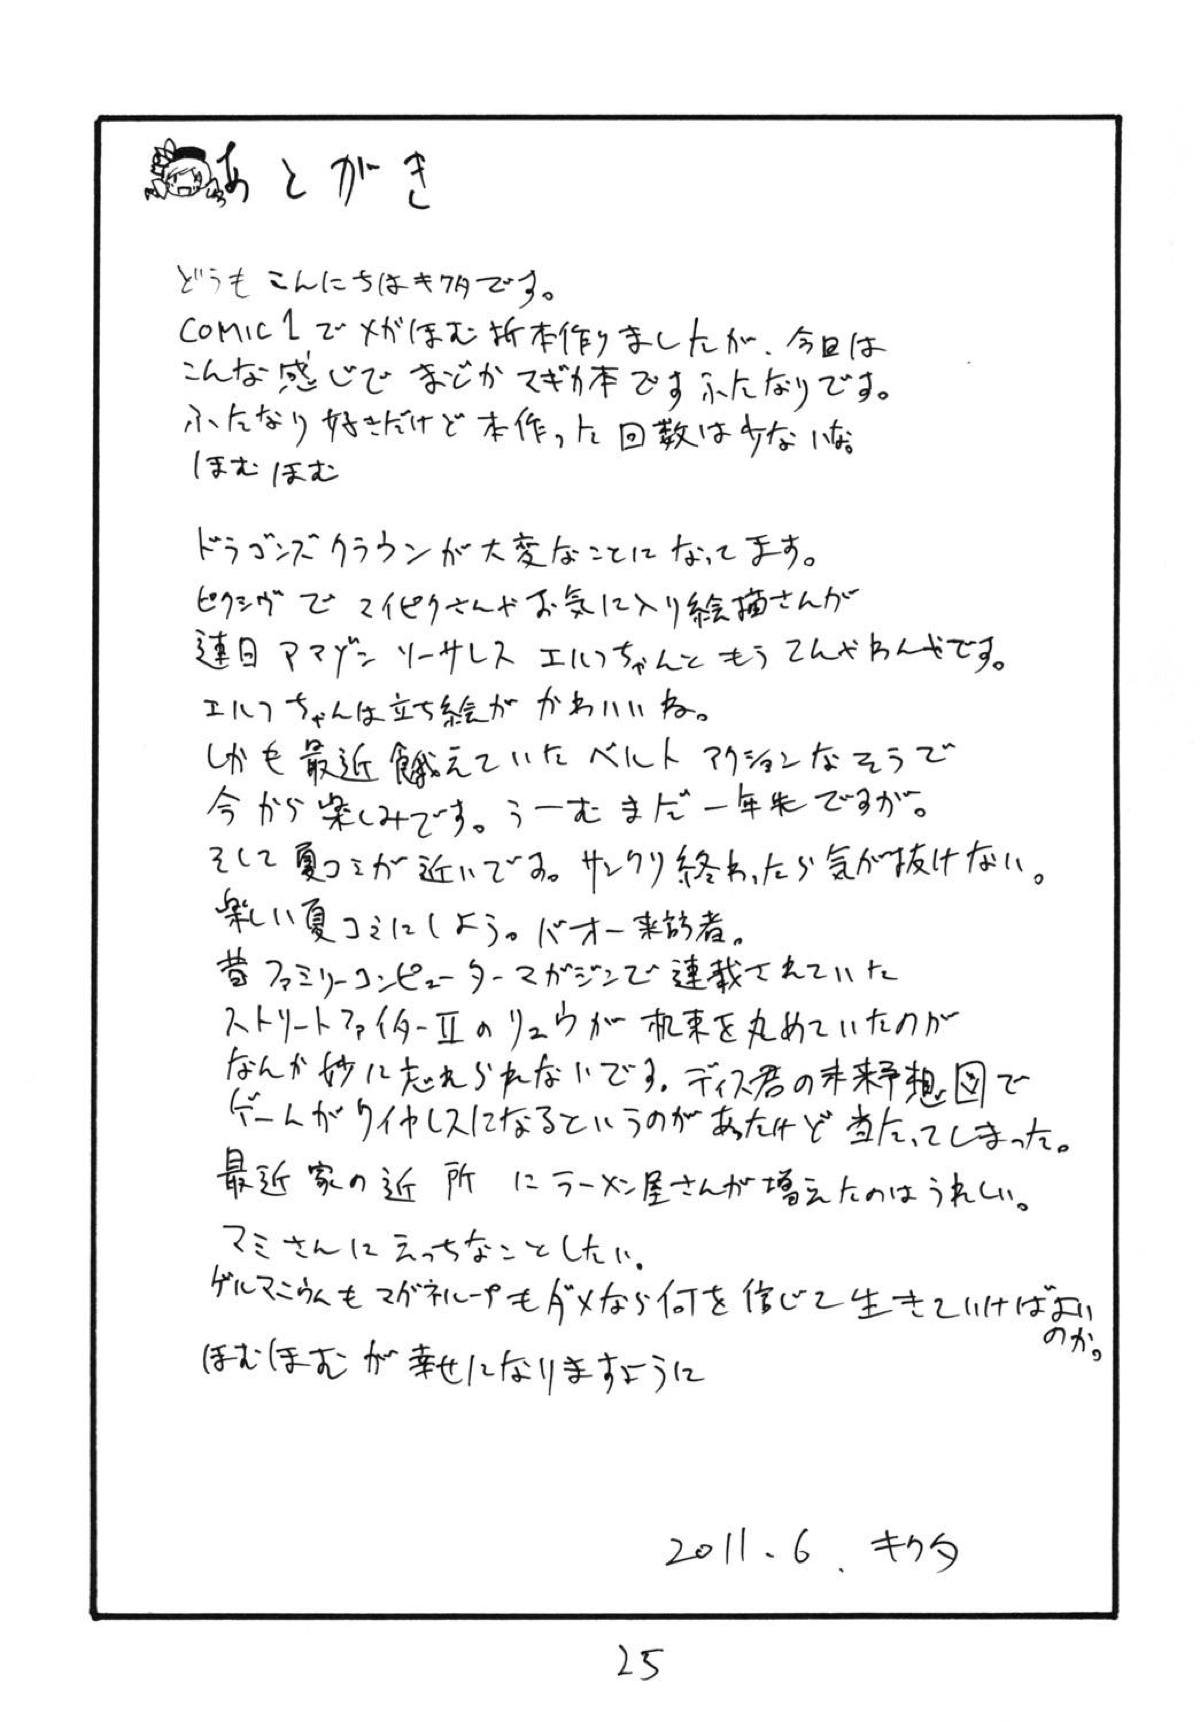 あとがき
どうもこんにちはキクタです。
COMIC1でメガほむ折本作りましたが、今回は
こんな感じでまどかマギカ本ですふたなりです。
ふたなり好きだけど本作った回数は少ないな。
ほむほむ
ドラゴンズクラウンが大変なことになってます。
ピクシヴでマイピクさんやお気に入り絵描さんが
連日アマゾンソーサレスエルフちゃんともうてんやわんやです。
エルフちゃんは立ち絵がかわいいね。
しかも最近餓えていたベルトアクションなそうで
今から楽しみです。うーむまだ一年先ですが。
そして夏コミが近いです。サンクリ終わったら気が抜けない。
楽しい夏コミにしよう。バオー来訪者。
昔ファミリーコンピューターマガジンで連載されていた
ストリートファイターIIのリュウが札束を丸めていたのが
なんか妙に忘れられないです。ディス君の未来予想図で
ゲームがワイヤレスになるというのがあったけど当たってしまった。
最近家の近所にラーメン屋さんが増えたのはうれしい。
マミさんにえっちなことしたい。
ゲルマニウムもマグネループもダメなら何を信じて生きていけばよい
のか。
ほむほむが幸せになりますように
2011.6. キクタ
25